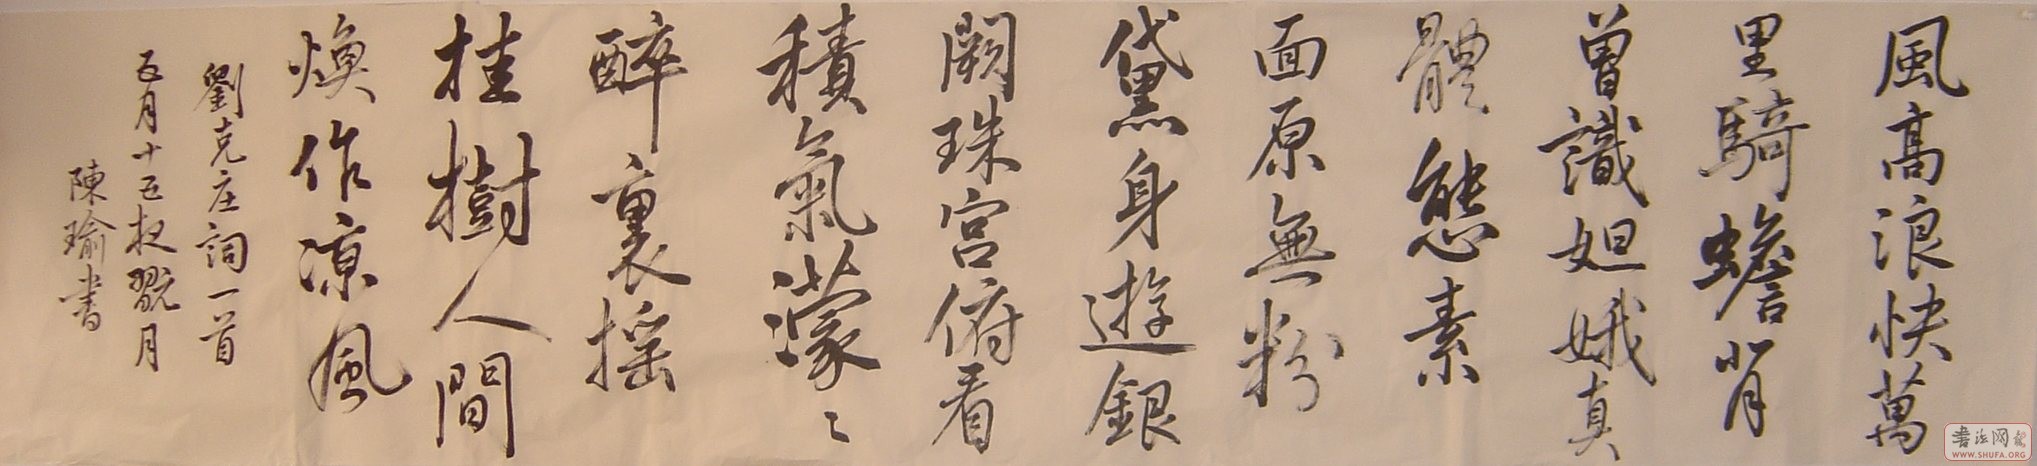 風高浪快萬
里騎蟾背
曾識姮娥真
體態素
面原無粉
黛身遊銀
闕珠宮俯看
積氣濛々
醉裏摇
桂樹人間
煥作凉風
劉克庄詞一首
五月十五夜翫月
陳瑜書
書法网
WWW.SHUFA.ORG